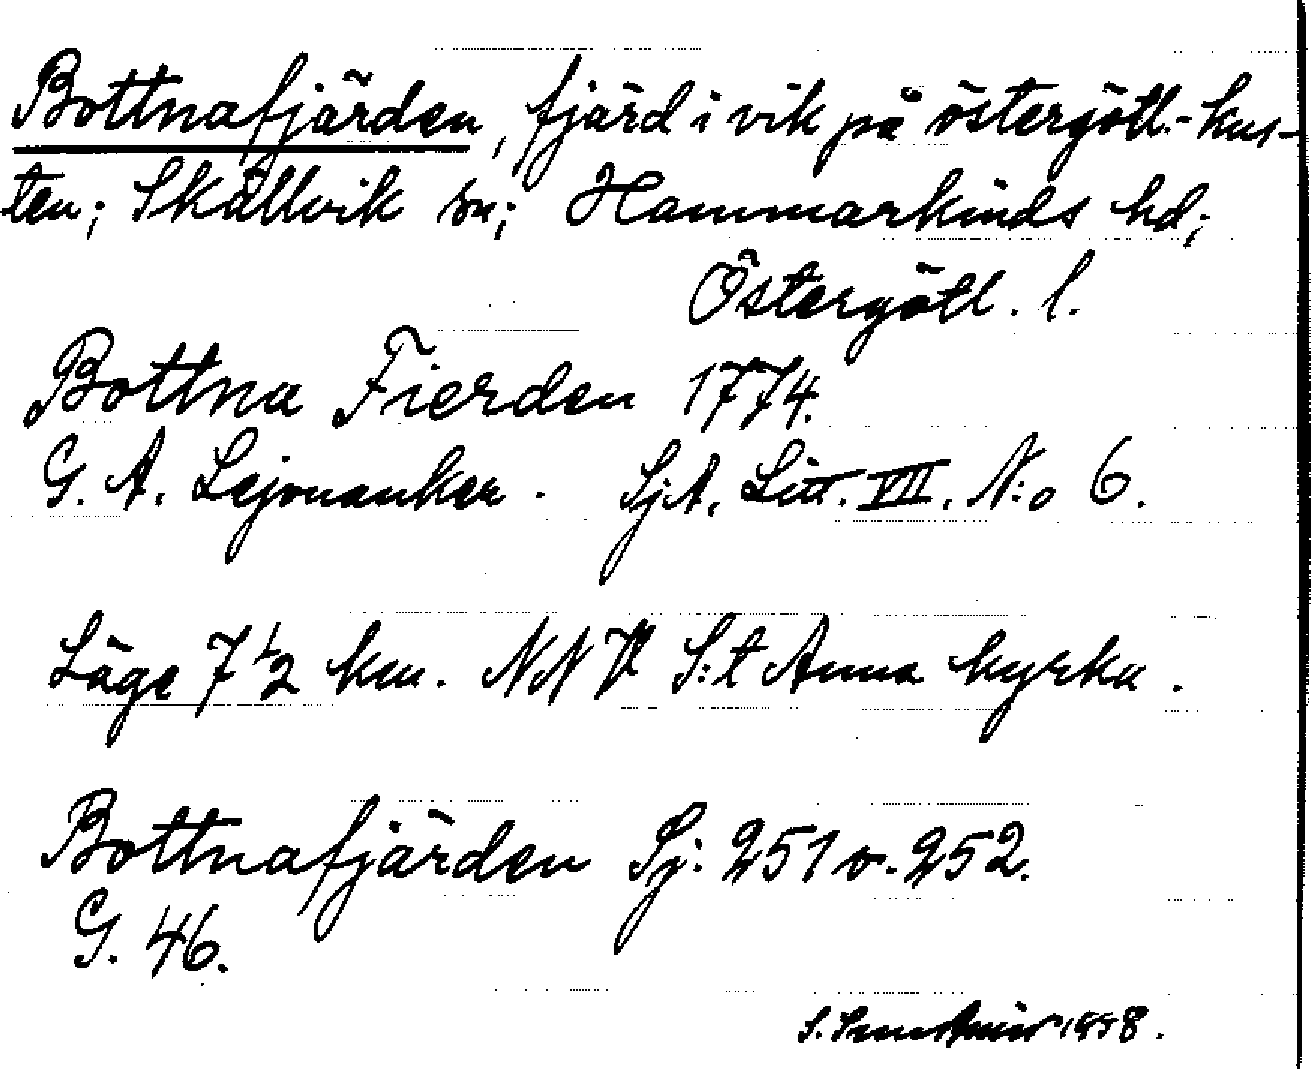 Bottnafjärden, fjärd i vik på östergötl.-kus-
ten; Skällvik sn; Hammarkinds hd;
Östergötl. l.
Bottna Fierden 1774.
G. A. Lejonanker. SjA, Litt. VII. N:o 6.
Läge 7 1/2 km. NNV S:t Anna kyrka.
Bottnafjärden Sj. 251 o. 252.
G. 46.
S.